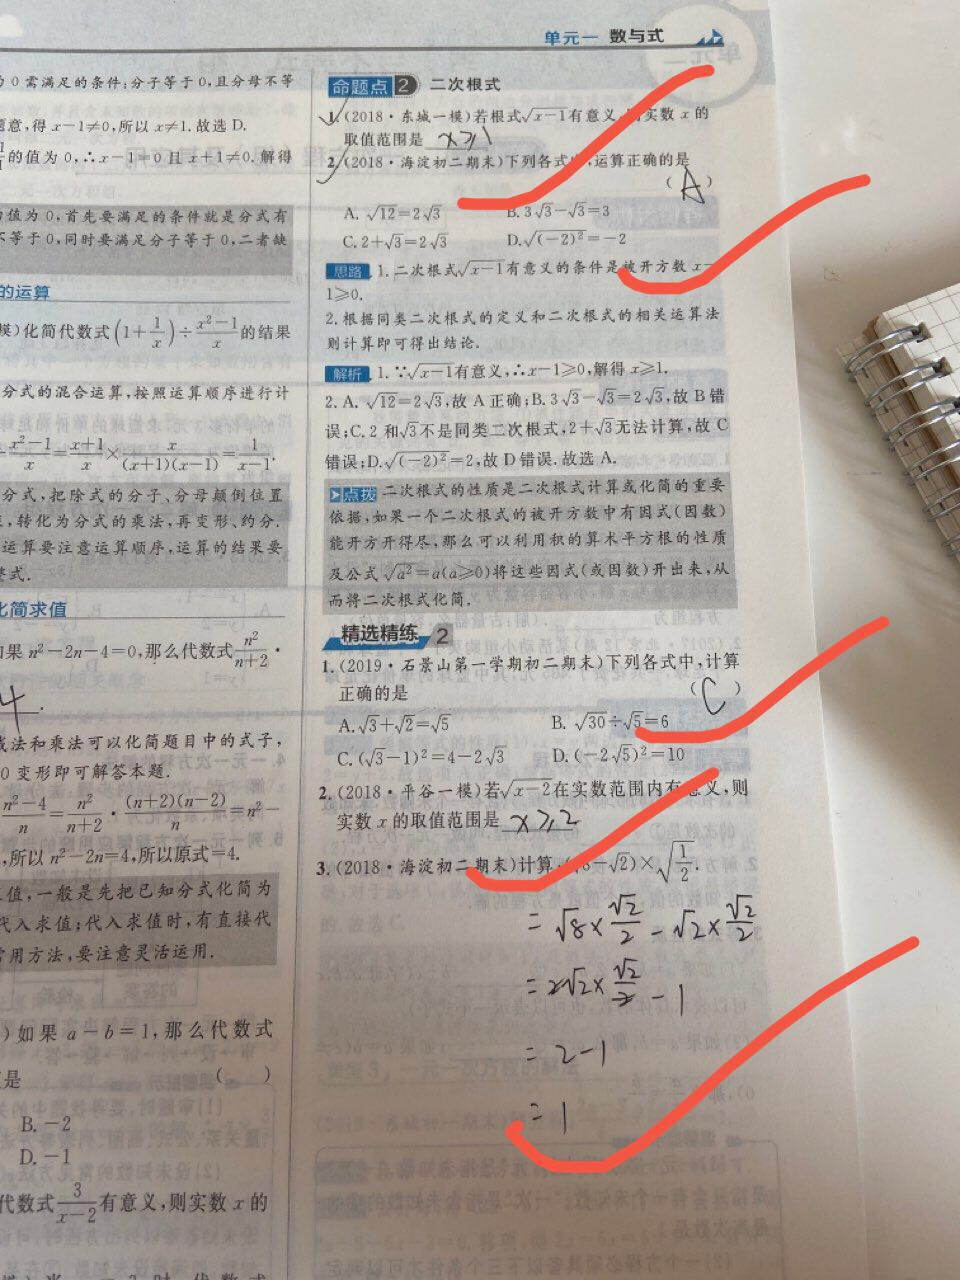 单元一 数与式
为0需满足的条件:分子等于0,且分母不等
题意,得x-1≠0,所以x≠1.故选D.
的值为0,∴x-1=0且x+1≠0.解得
值为0,首先要满足的条件就是分式有
不等于0,同时要满足分子等于0,二者缺
的运算
模)化简代数式(1+1/x)÷(x²-1)/x的结果
分式的混合运算,按照运算顺序进行计
(x²-1)/x=(x+1)/x×x/((x+1)(x-1))=1/(x-1).
分式,把除式的分子、分母颠倒位置
,转化为分式的乘法,再变形、约分.
运算要注意运算顺序,运算的结果要
整式.
化简求值
如果n²-2n-4=0,那么代数式n²/(n+2)·
4.
减法和乘法可以化简题目中的式子,
0变形即可解答本题.
(n²-4)/n=n²/(n+2)·((n+2)(n-2))/n=n²-
,所以n²-2n=4,所以原式=4.
值,一般是先把已知分式化简为
代入求值;代入求值时,有直接代
常用方法,要注意灵活运用.
)如果a-b=1,那么代数式
是 ( )
B.-2
D.-1
代数式3/(x-2)有意义,则实数x的
命题点2 二次根式
1.(2018·东城一模)若根式√(x-1)有意义,实数x的
取值范围是 x≥1
2.(2018·海淀初二期末)下列各式中,运算正确的是
(A)
A.√12=2√3 B.3√3-√3=3
C.2+√3=2√3 D.√((-2)²)=-2
思路 1.二次根式√(x-1)有意义的条件是被开方数x-
1≥0.
2.根据同类二次根式的定义和二次根式的相关运算法
则计算即可得出结论.
解析 1.∵√(x-1)有意义,∴x-1≥0,解得x≥1.
2.A.√12=2√3,故A正确;B.3√3-√3=2√3,故B错
误;C.2和√3不是同类二次根式,2+√3无法计算,故C
错误;D.√((-2)²)=2,故D错误.故选A.
点拨 二次根式的性质是二次根式计算或化简的重要
依据,如果一个二次根式的被开方数中有因式(因数)
能开方开得尽,那么可以利用积的算术平方根的性质
及公式√(a²)=a(a≥0)将这些因式(或因数)开出来,从
而将二次根式化简.
精选精练2
1.(2019·石景山第一学期初二期末)下列各式中,计算
正确的是 (C)
A.√3+√2=√5 B.√30÷√5=6
C.(√3-1)²=4-2√3 D.(-2√5)²=10
2.(2018·平谷一模)若√(x-2)在实数范围内有意义,则
实数x的取值范围是 x≥2
3.(2018·海淀初二期末)计算:(√8-√2)×√(1/2).
=√8×√2/2-√2×√2/2
=2√2×√2/2-1
=2-1
=1